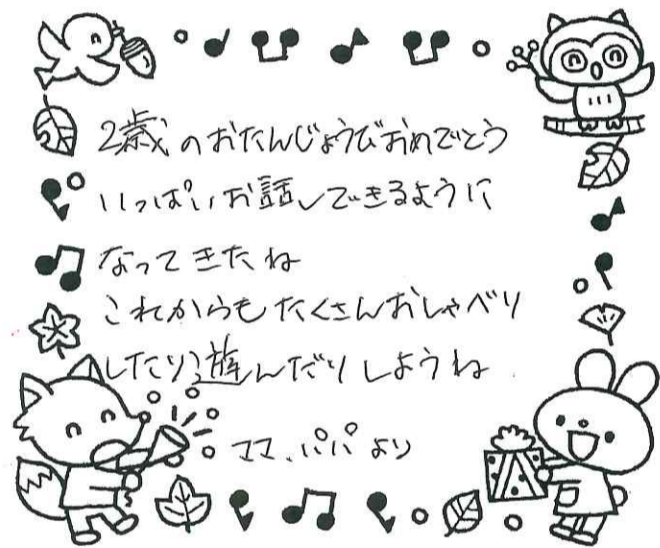 2歳のおたんじょうびおめでとう
いっぱいお話しできるように
なってきたね
これからもたくさんおしゃべり
したり遊んだりしようね
ママ、パパより